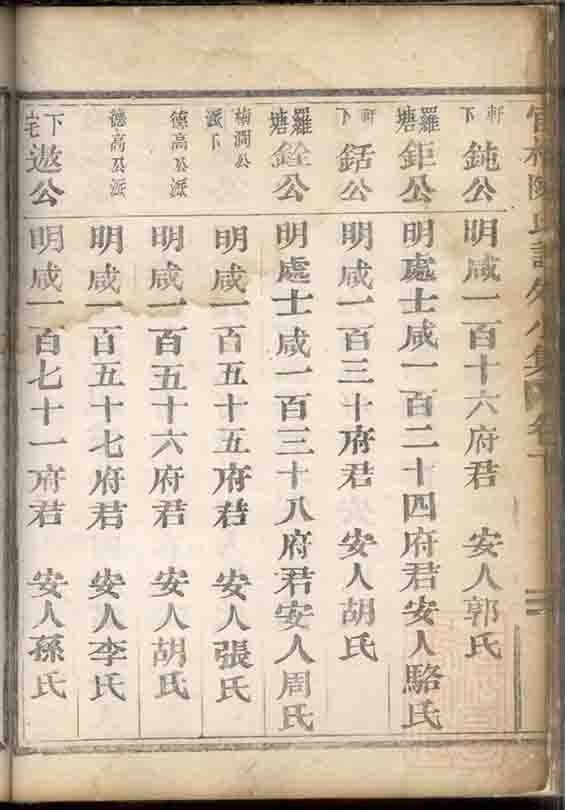 軒下鈍公 明咸一百十六府君 安人郭氏
羅塘鉅公 明處士咸一百二十四府君安人駱氏
軒下銛公 明咸一百三十府君 安人胡氏
羅塘銓公 明處士咸一百三十八府君安人周氏
楠澗公派下 明咸一百五十五府君 安人張氏
德高公派 明咸一百五十六府君 安人胡氏
德高公派 明咸一百五十七府君 安人李氏
下宅遨公 明咸一百七十一府君 安人孫氏